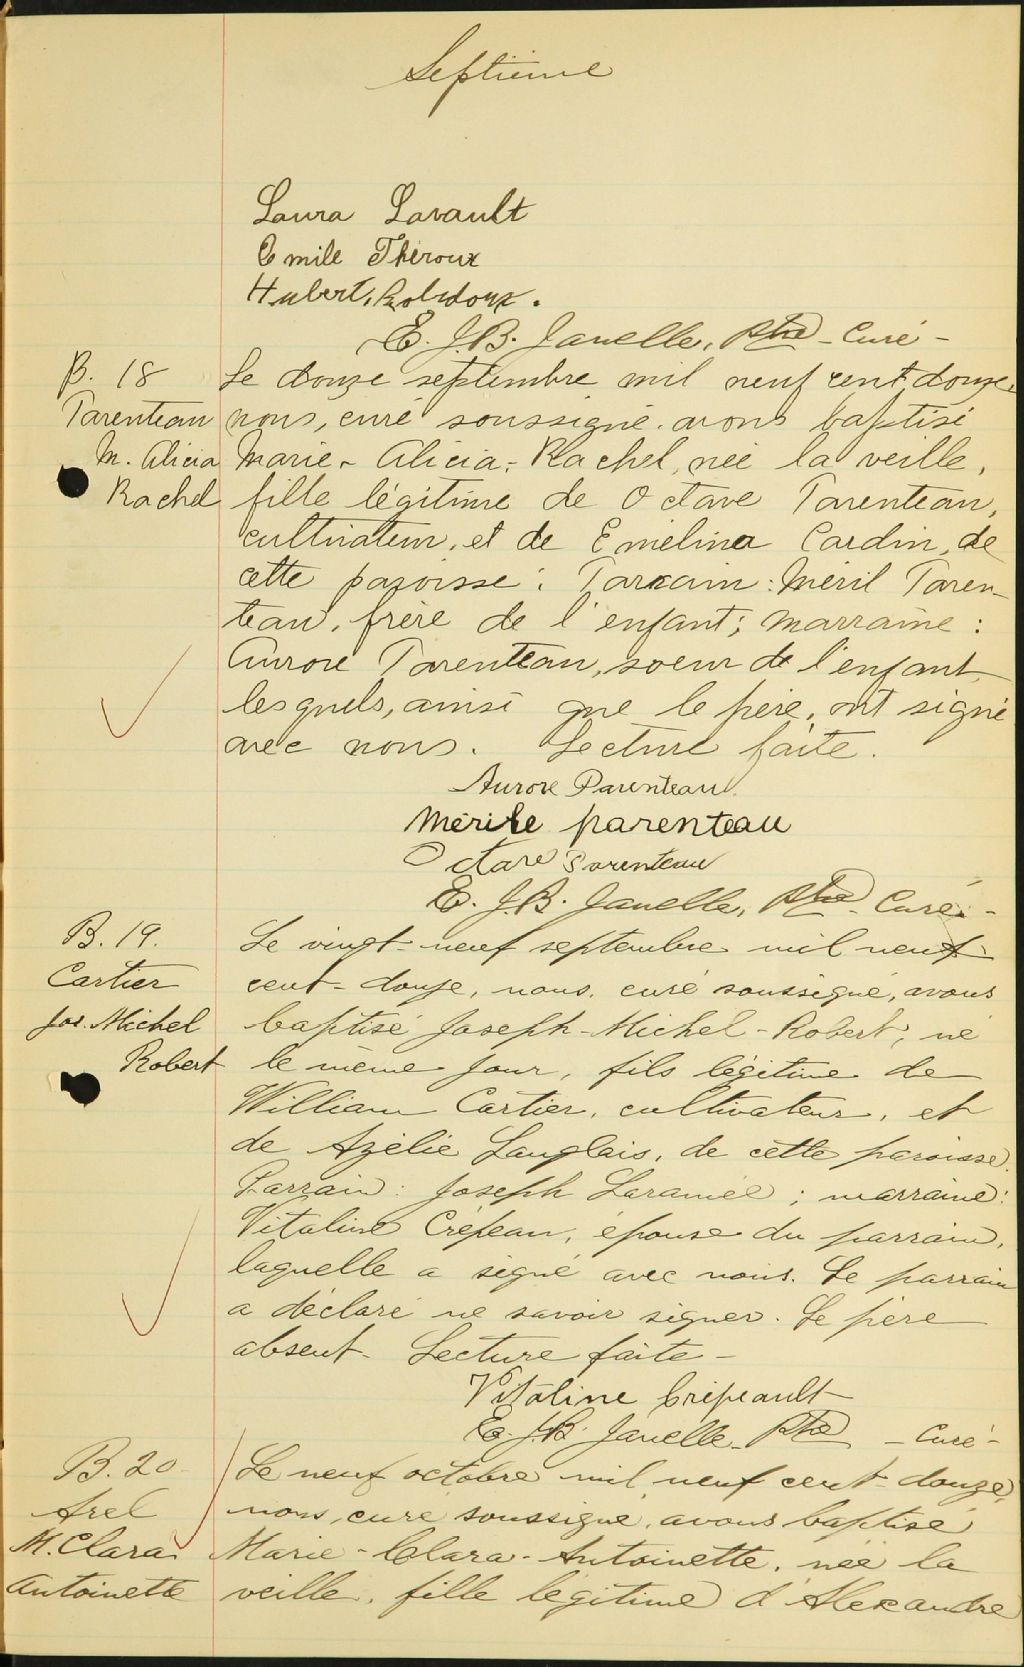 Septième
Laura Lavault
Emile Théroux
Hubert Robidoux.
E. J. B. Janelle, Ptre - Curé -
B. 18
Le douze septembre mil neuf cent douze,
Parenteau
nous, curé soussigné avons baptisé
M. Alicia
Marie - Alicia - Rachel, née la veille,
Rachel
fille légitime de Octave Parenteau,
cultivateur, et de Emélina Cardin, de
cette paroisse. Parrain : Méril Paren-
teau, frère de l'enfant ; marraine :
Aurore Parenteau, soeur de l'enfant,
lesquels, ainsi que le père, ont signé
avec nous. Lecture faite.
Aurore Parenteau
Mérile parenteau
Octave Parenteau
E. J. B. Janelle, Ptre - Curé -
B. 19.
Le vingt-neuf septembre mil neuf
Cartier
cent-douze, nous, curé soussigné, avons
Jos. Michel
baptisé Joseph-Michel-Robert, né
Robert
le même jour, fils légitime de
William Cartier, cultivateur, et
de Azélie Langlais, de cette paroisse.
Parrain : Joseph Laramée ; marraine :
Vitaline Crépeau, épouse du parrain,
laquelle a signé avec nous. Le parrain
a déclaré ne savoir signer. Le père
absent - Lecture faite -
Vitaline Crépeault
E. J. B. Janelle - Ptre - Curé -
B. 20
Le neuf octobre mil neuf cent-douze,
Arel
nous, curé soussigné, avons baptisé
M. Clara
Marie - Clara - Antoinette, née la
Antoinette
veille, fille légitime d'Alexandre